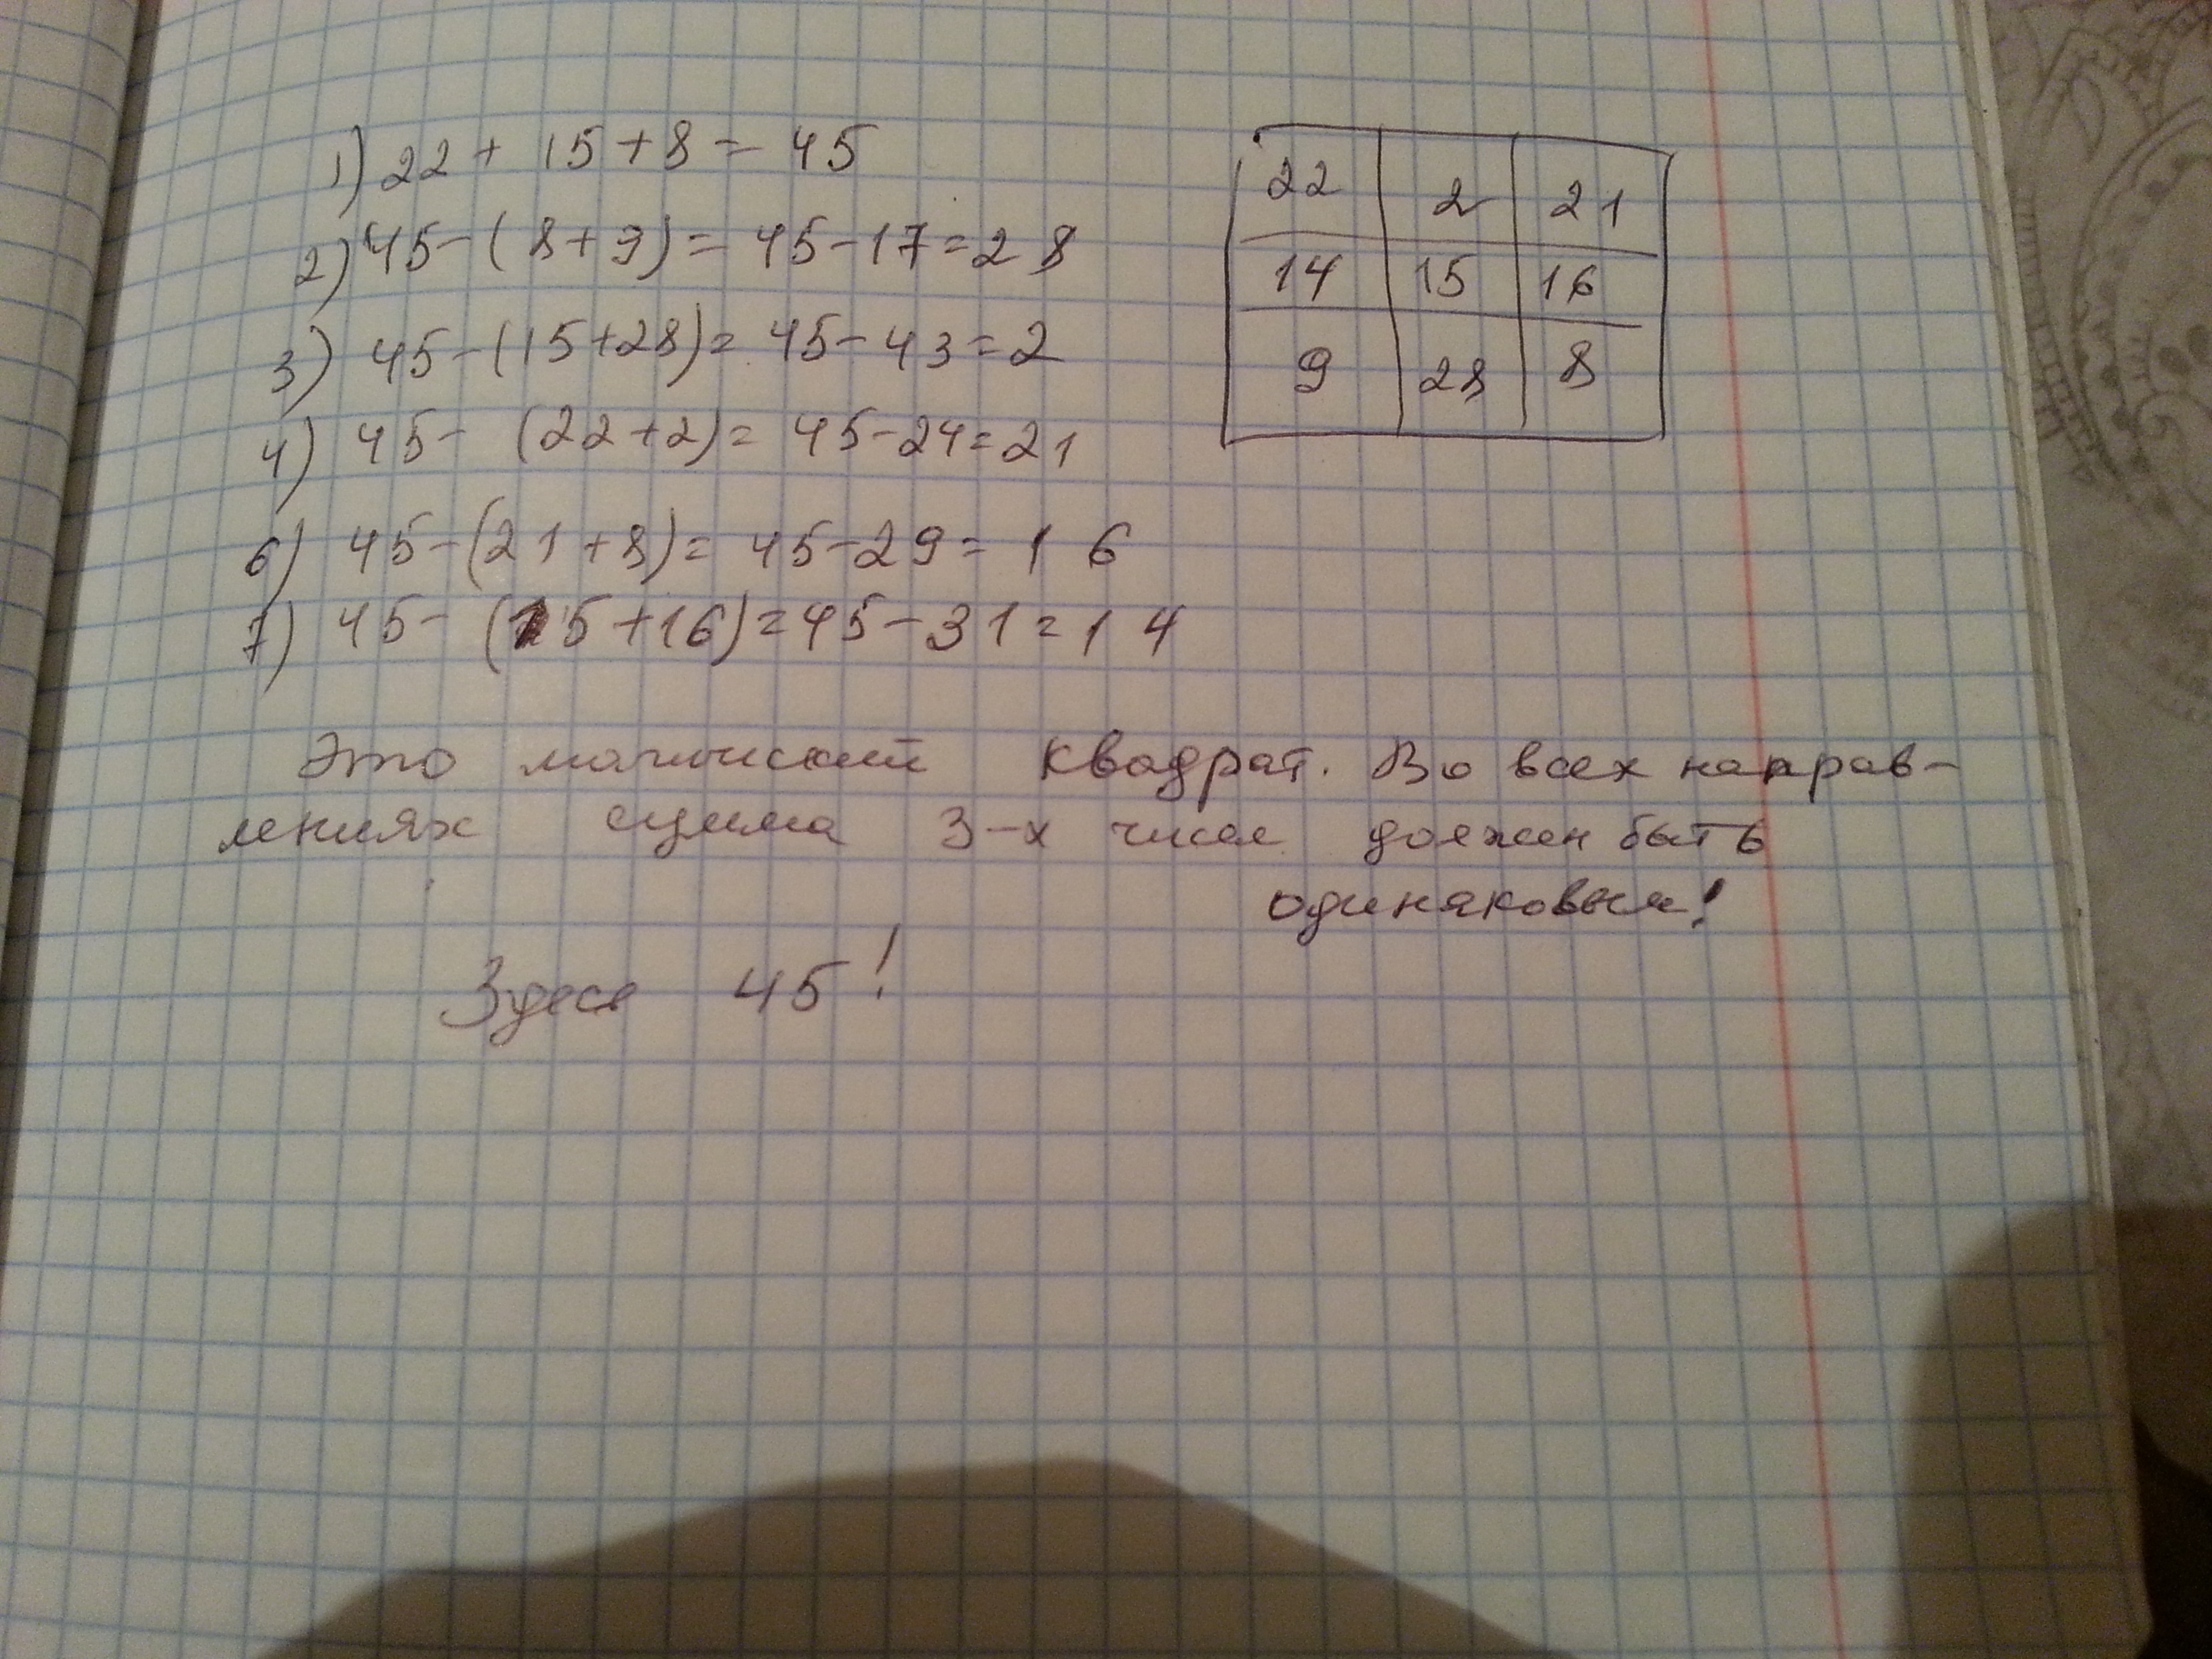 1) 22 + 15 + 8 = 45
2) 45 - (8 + 9) = 45 - 17 = 28
3) 45 - (15 + 28) = 45 - 43 = 2
4) 45 - (22 + 2) = 45 - 24 = 21
6) 45 - (21 + 8) = 45 - 29 = 16
7) 45 - (15 + 16) = 45 - 31 = 14
22 2 21
14 15 16
9 28 8
Это магический квадрат. Во всех направ-
лениях сумма 3-х чисел должен быть
одинаковым!
Здесь 45!